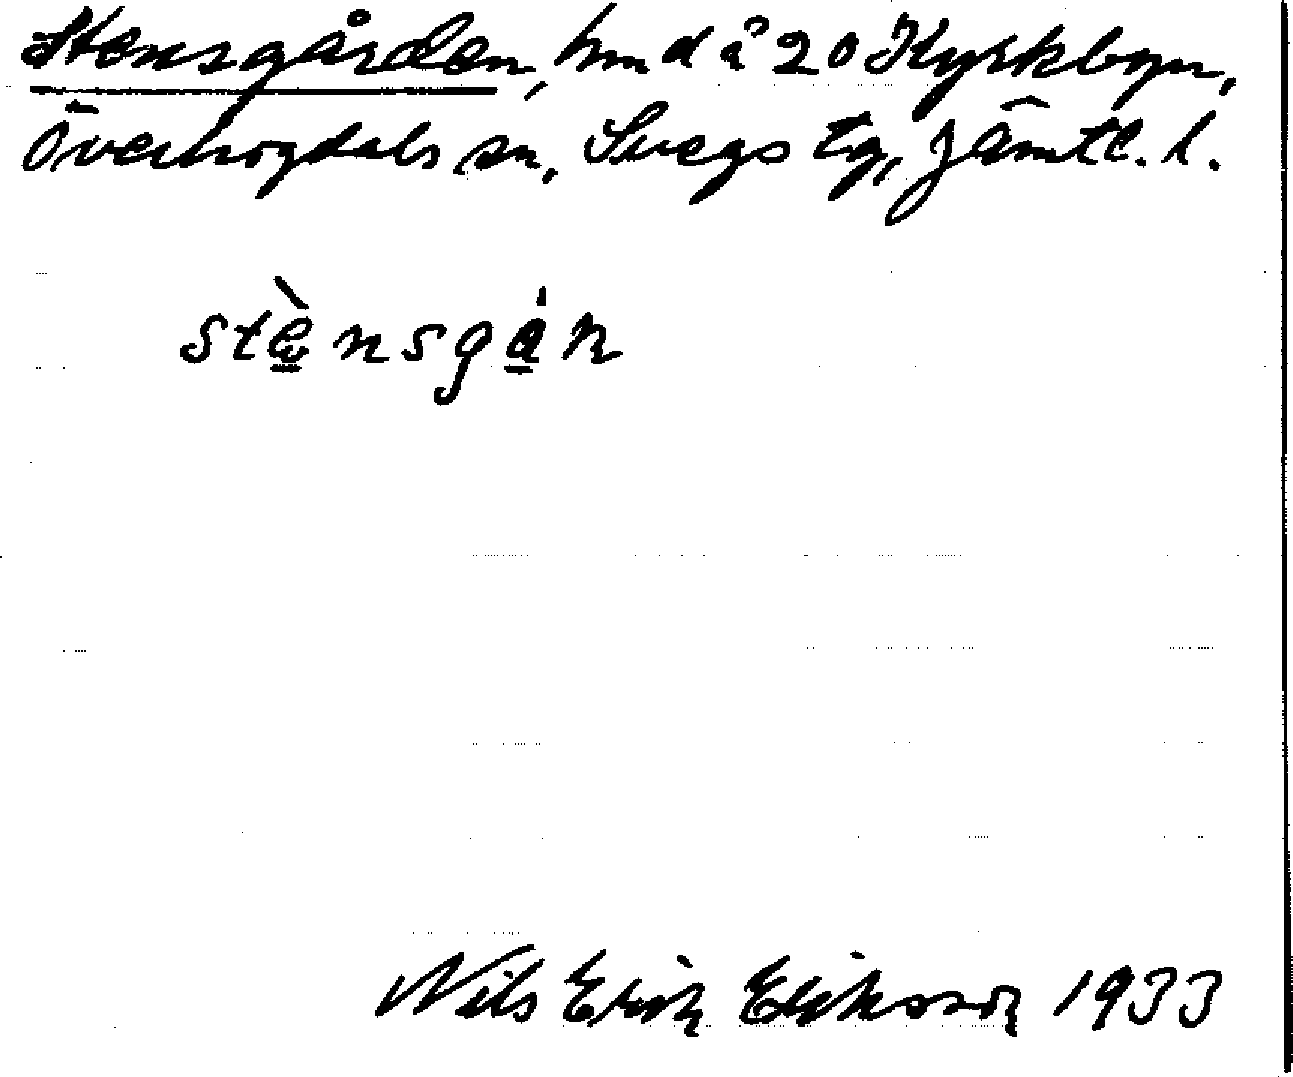 Stensgården, hmd å 20 Kyrkbyn,
Överhogdals sn, Svegs tg, Jämtl. l.
stènsgȧn
Nils Erik Eriksson 1933